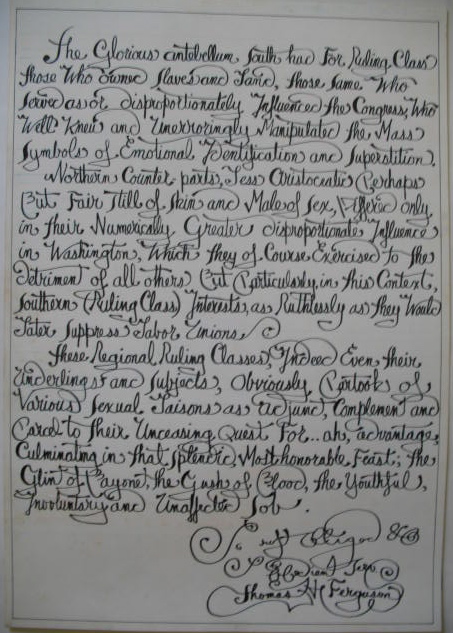 The Glorious antebellum South had For Ruling Class
those Who owned Slaves and Land, those same Who
served as or disproportionately Influenced the Congress, Who
Well Knew and Unerroringly Manipulated the Mass
Symbols of Emotional Identification and Superstition.
Northern Counter parts, Less Aristocratic Perhaps
But Fair Still of Skin and Male of Sex, Differed only
in their Numerically Greater disproportionate Influence
in Washington, Which they of Course Exercised to the
Detriment of all others But Particularly, in this Context,
Southern (Ruling Class) Interests, as Ruthlessly as they Would
Later Suppress Labor Unions.
These Regional Ruling Classes, Indeed Even their
Underlings and Subjects, Obviously Partook of
Various Sexual Liaisons as adjunct, Complement and
Parcel to Their Unceasing Quest For... ah, advantage,
Culminating in that Splendid, Most honorable Feast; the
Glint of Bayonet, the Gush of Blood, the Youthful,
Involuntary and Unaffected Sob.
Obedient
Thomas H Ferguson